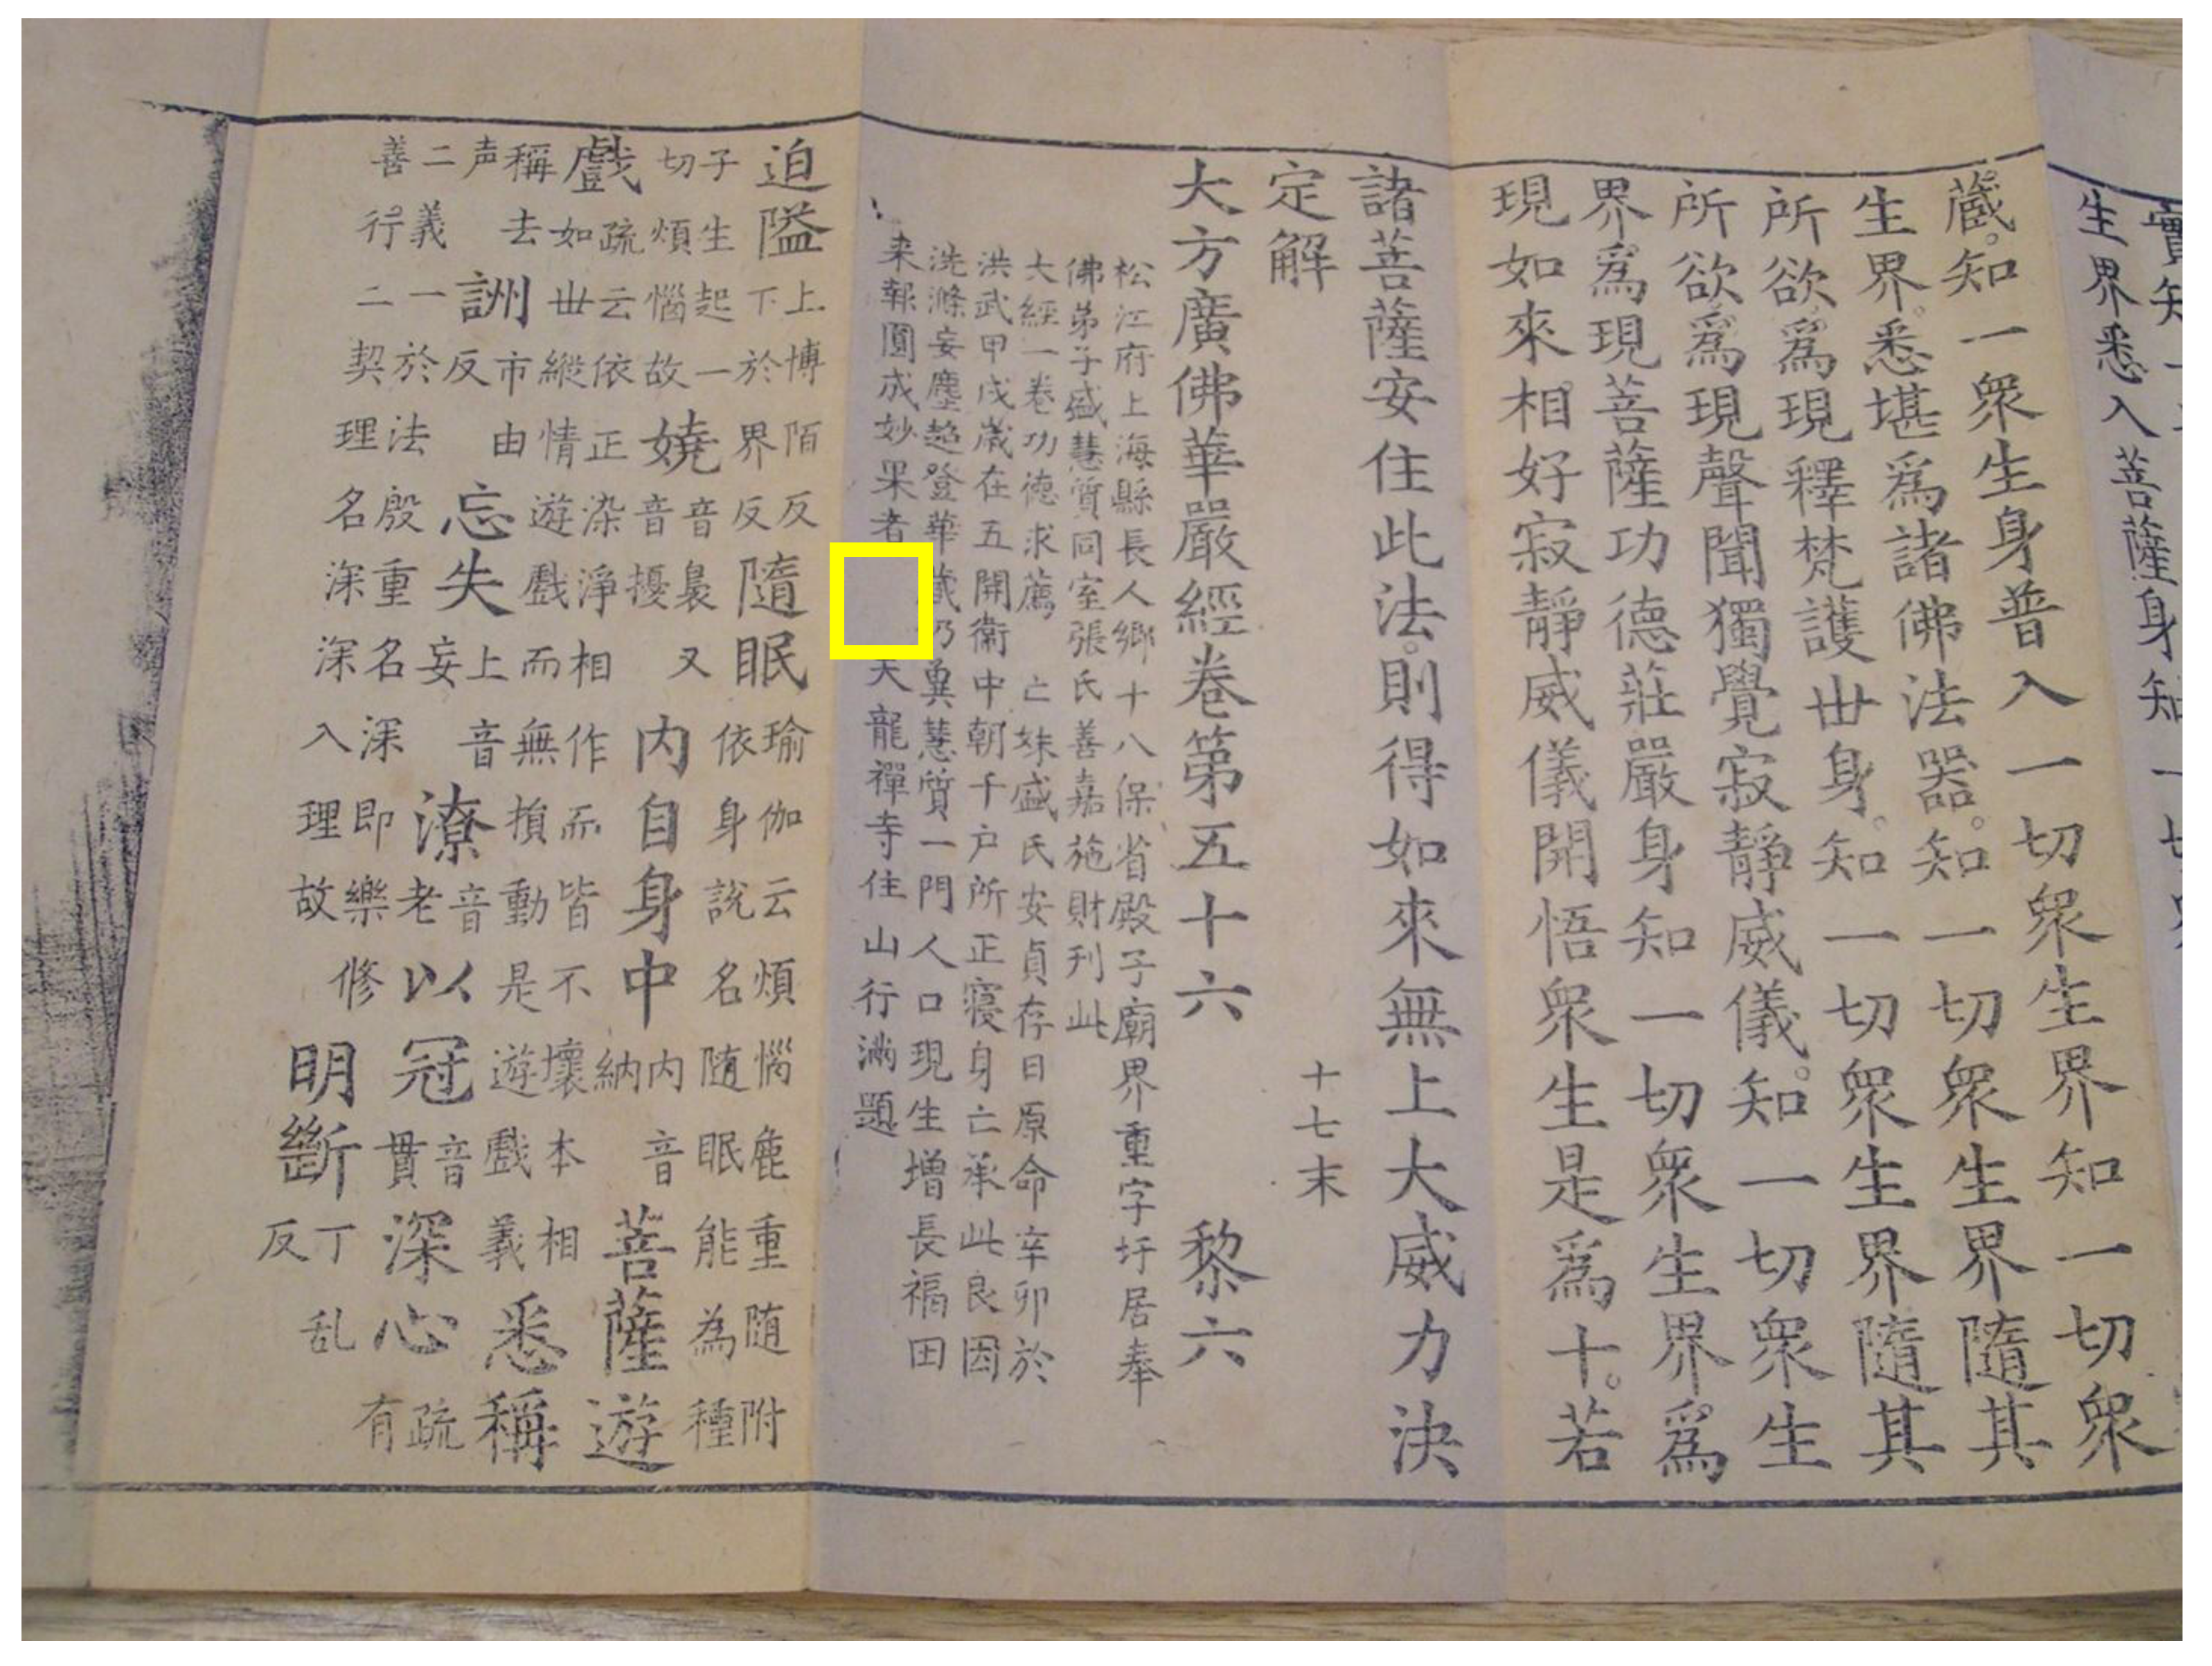 寶知一
生界悉入菩薩身知一切
藏知一衆生身普入一切衆生界知一切衆
生界悉堪爲諸佛法器知一切衆生界隨其
所欲爲現釋梵護世身知一切衆生界隨其
所欲爲現聲聞獨覺寂靜威儀知一切衆生
界爲現菩薩功德莊嚴身知一切衆生界爲
現如來相好寂靜威儀開悟衆生是爲十若
諸菩薩安住此法則得如來無上大威力決
定解
十七末
大方廣佛華嚴經卷第五十六 黎六
松江府上海縣長人鄉十八保省殿子廟界重字圩居奉
佛弟子盛慧質同室張氏善嘉施財刋此
大經一卷功德求薦 亡妹盛氏安貞存日原命辛卯於
洪武甲戌歲在五開衛中朝千户所正寢身亡承此良因
洗滌妄塵超登華藏仍兾慧質一門人口現生增長福田
来報圓成妙果者 天龍禪寺住山行滿題
迫隘上博陌反
下於界反
隨眠瑜伽云煩惱麁重随附
依身說名随眠能為種
子生起一
切煩惱故
嬈音裊又
音擾
內自身中内音
納
菩薩遊
戲疏云依正染淨相作而皆不壞本相
如世縱情遊戲而無而損動是遊戲義
稱去
声
詶市由
反
忘失上音
妄
潦音
老
以冠音
貫
悉稱
二義一於法殷重名深即樂修
善行二契理名深深入深理故
深心疏
有
明斷丁
乱
反